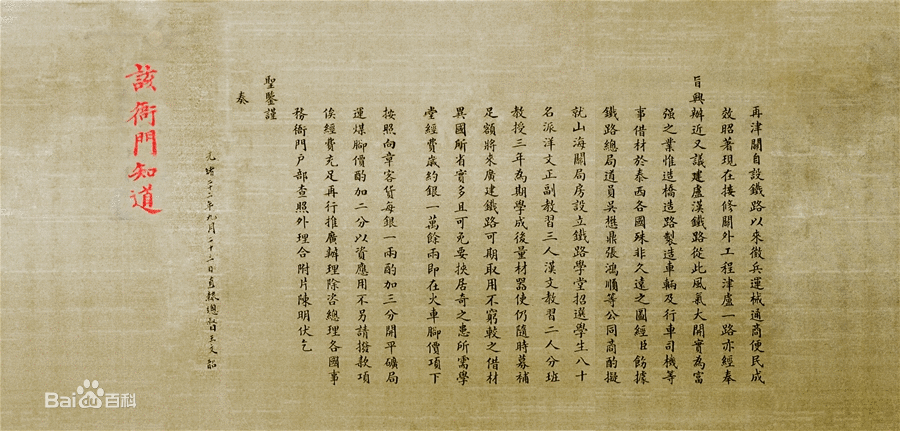 再津關自設鐵路以來徵兵運械通商便民成
效昭著現在接修關外工程津盧一路亦經奉
旨興辦近又議建盧漢鐵路從此風氣大開實為富
强之業惟造橋造路製造車輛及行車司機等
事借材於泰西各國殊非久遠之圖經臣飭據
鐵路總局道員吳懋鼎張鴻順等公同商酌擬
就山海關局房設立鐵路學堂招選學生八十
名派洋文正副教習三人漢文教習二人分班
教授三年為期學成後量材器使仍隨時募補
足額將來廣建鐵路可期取用不窮較之借材
異國所省實多且可免要挾居奇之患所需學
堂經費歲約銀一萬餘兩即在火車腳價項下
按照向章客貨每銀一兩酌加三分開平礦局
運煤腳價酌加二分以資應用不另請撥款項
俟經費充足再行推廣辦理除咨總理各國事
務衙門戶部查照外理合附片陳明伏乞
聖鑒謹
奏
光緒二十二年九月二十二日直隸總督王文韶
該衙門知道
Baidu百科